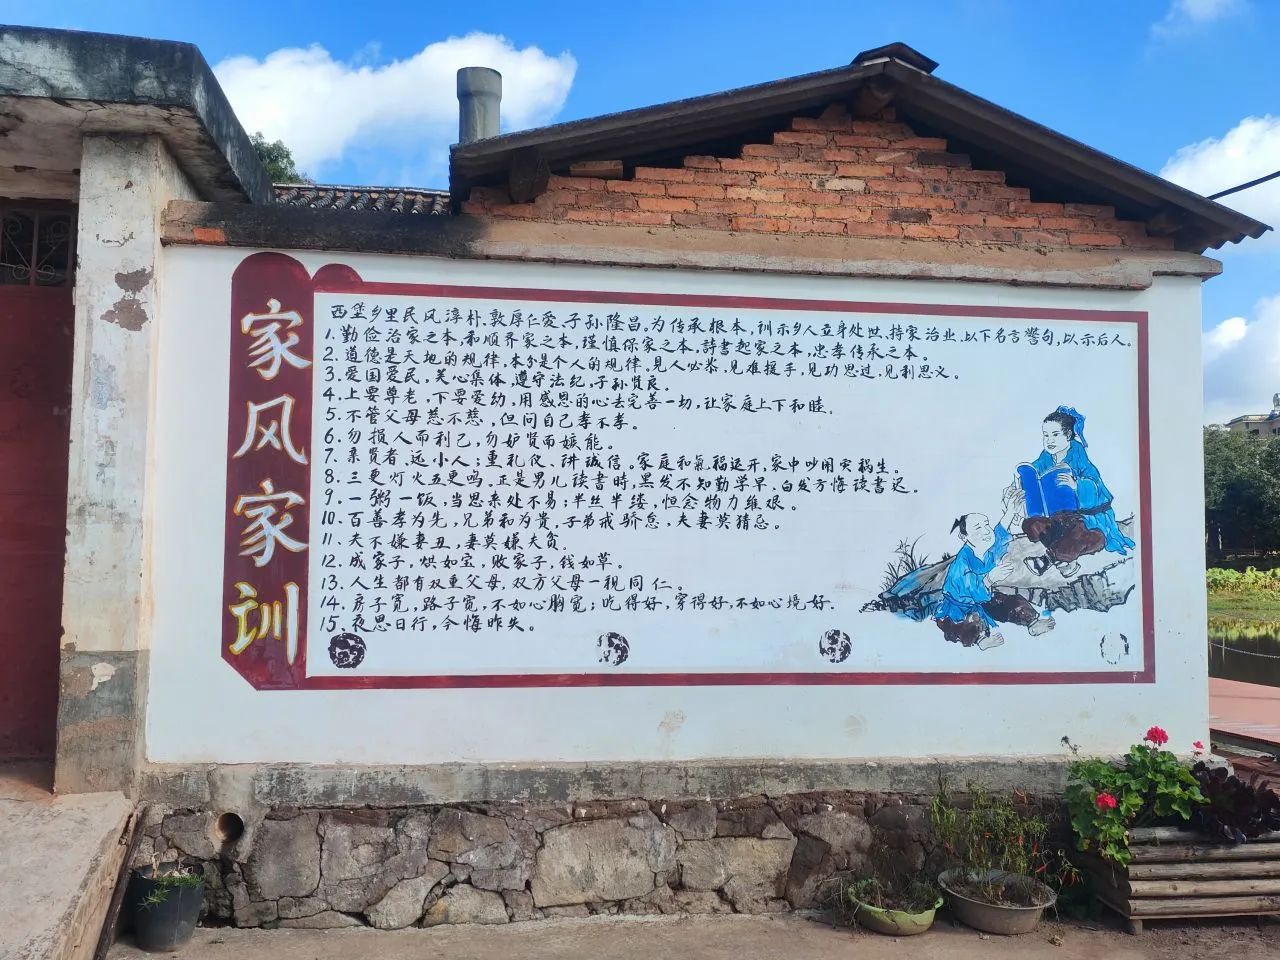 家风家训
西垡乡里民风淳朴、敦厚仁爱、子孙隆昌。为传承根本，训示乡人立身处世、持家治业、以下名言警句，以示后人。
1.勤俭治家之本，和顺齐家之本，谨慎保家之本，詩書起家之本，忠孝传承之本。
2.道德是天地的规律，本分是个人的规律。見人必恭、见难援手、见功思过、见利思义。
3.爱国爱民，关心集体，遵守法纪，子孙贤良。
4.上要尊老，下要爱幼，用感恩的心去完善一切，让家庭上下和睦。
5.不管父母慈不慈，但问自己孝不孝。
6.勿损人而利己，勿妒贤而嫉能。
7.亲贤者、远小人；重礼仪、讲诚信。家庭和氣福运开，家中吵闹灾祸生。
8.三更灯火五更鸣。正是男儿读書時，黑发不知勤学早、白发方悔读書迟。
9.一粥一饭，当思来处不易；半丝半缕，恒念物力维艰。
10.百善孝为先，兄弟和为贵，子弟戒骄怠，夫妻莫猜忌。
11.夫不嫌妻丑，妻莫嫌夫贫。
12.成家子，烘如宝，败家子，钱如草。
13.人生都有双重父母，双方父母一视同仁。
14.房子宽，路子宽，不如心胸宽；吃得好，穿得好，不如心境好。
15.夜思日行，今悔昨失。